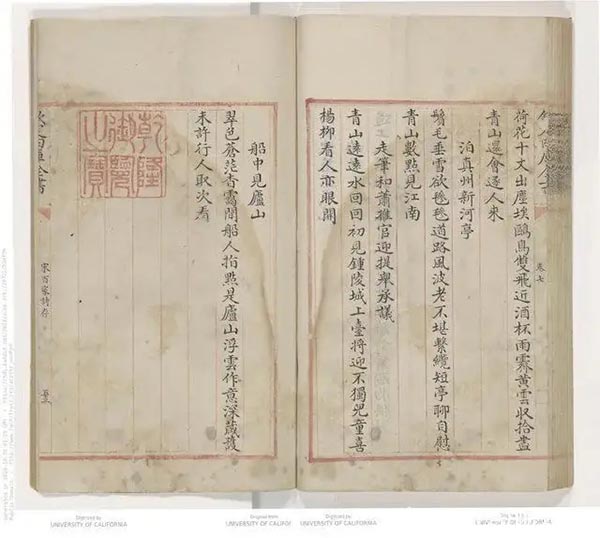 欽定四庫全書
卷七
荷花十丈出塵埃鷗鳥雙飛近酒杯雨霽黃雲収拾盡
青山還會逐人來
泊真州新河亭
鬢毛垂雪欲毿毿道路風波老不堪繫纜短亭聊自慰
青山數點見江南
走筆和蕭推官迎提舉承議
青山遠遠水回回初見鍾陵城上臺將迎不獨兒童喜
楊柳看人亦眼開
船中見廬山
翠色蒼茫杳靄間船人指點是廬山浮雲作意深藏護
未許行人取次看
乾隆御覽之寶
欽定四庫全書
宋百家詩存
Digitized by
UNIVERSITY OF CALIFORNIA
Original from
UNIVERSITY OF CALIFOR
Digitized by
UNIVERSITY OF CALIFORNIA